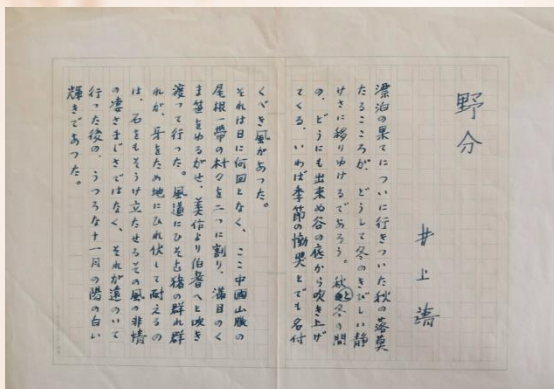 野分
井上靖
漂泊の果てについに行きついた秋の落莫
たるこころが、どうして冬のきびしい静
けさに移りゆけるであろう。秋と冬の間
の、どうにも出来ぬ谷の底から吹き上げ
てくる、いわば季節の慟哭とでも名付
くべき風があった。
それは日に何回となく、ここ中國山脈の
尾根一帯の村々を二つに割り、満目のく
ま笹をゆるがせ、美作より伯耆へと吹き
渡って行った。風道にひそむ猪の群れ群
れが、牙をため地にひれ伏して耐えるの
は、石をもそうけ立たせるその風の非情
の凄さまじさではなく、それが遠のいて
行った後の、うつろな十一月の陽の白い
輝きであった。